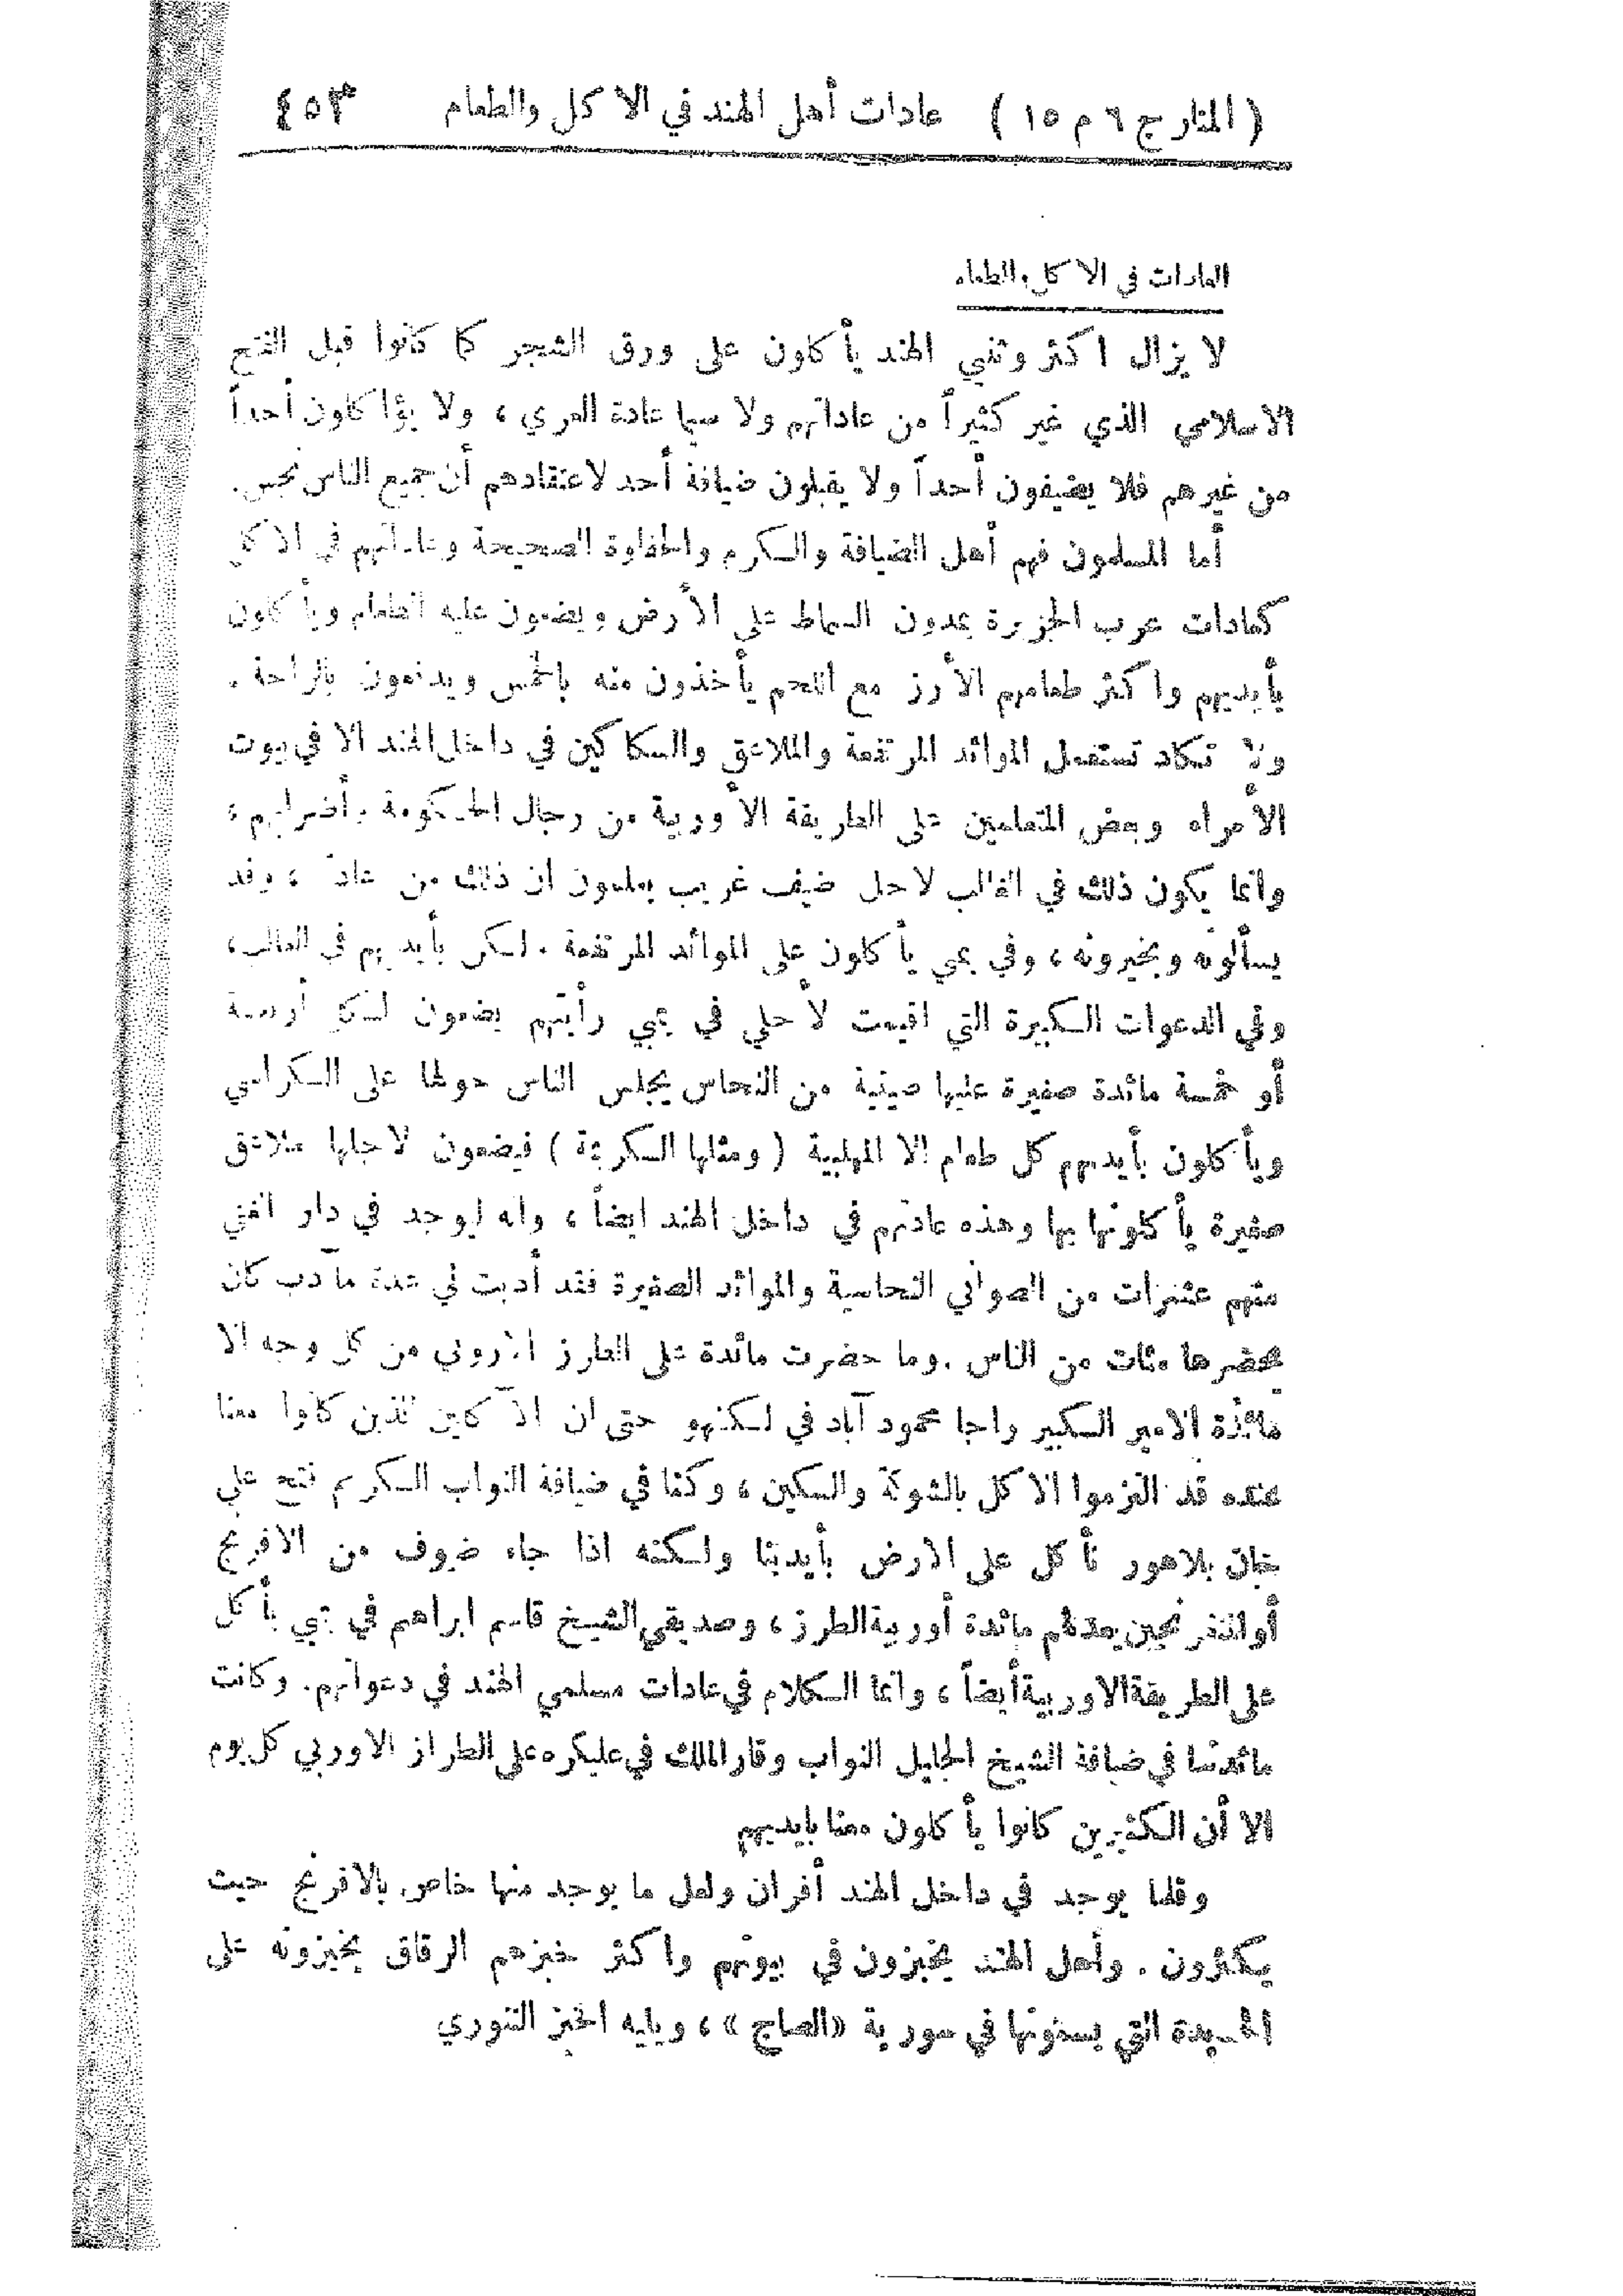 (المنار ج ٦ م ١٥) عادات أهل الهند في الاكل والطعام ٤٥٣
العادات في الاكل والطعام
لا يزال اكثر وثنيي الهند يأكلون على ورق الشجر كما كانوا قبل الفتح
الاسلامي الذي غير كثيراً من عاداتهم ولا سيما عادة العري ، ولا يؤاكلون أحداً
من غيرهم فلا يضيفون أحداً ولا يقبلون ضيافة أحد لاعتقادهم أن جميع الناس نجس.
أما المسلمون فهم أهل الضيافة والكرم والحفاوة الصحيحة وعاداتهم في الاكل
كعادات عرب الجزيرة يمدون السماط على الأرض ويضعون عليه الطعام ويأكلون
بأيديهم واكثر طعامهم الأرز مع اللحم يأخذون منه بالخمس ويدفعون بالراحة .
ولا تكاد تستعمل الموائد المرتفعة والملاعق والسكاكين في داخل الهند الا في بيوت
الأمراء وبعض المتعلمين على الطريقة الأوربية من رجال الحكومة وأضرابهم ،
وانما يكون ذلك في الغالب لاجل ضيف غريب يعلمون ان ذلك من عادته ، وقد
يسألونه ويخيرونه ، وفي بمبي يأكلون على الموائد المرتفعة . لكن بأيديهم في الغالب،
وفي الدعوات الكبيرة التي اقيمت لأجلي في بمبي رأيتهم يضعون لكل أربعة
أو خمسة مائدة صغيرة عليها صينية من النحاس يجلس الناس حولها على الكراسي
ويأكلون بأيديهم كل طعام الا المهلبية ( ومثلها السكرية ) فيضعون لاجلها ملاعق
صغيرة يأكلونها بها وهذه عادتهم في داخل الهند ايضاً ، وانه ليوجد في دار الغني
منهم عشرات من الصواني النحاسية والموائد الصغيرة فقد أدبت لي عدة مآدب كان
يحضرها مئات من الناس . وما حضرت مائدة على الطراز الاوربي من كل وجه الا
مائدة الامير الكبير راجا محمود آباد في لكنهو حتى ان الآكلين الذين كانوا معنا
عنده قد التزموا الاكل بالشوكة والسكين ، وكنا في ضيافة النواب الكريم فتح علي
خان بلاهور نأكل على الارض بأيدينا ولكنه اذا جاء ضيوف من الافرنج
أو المتفرنجين يعد لهم مائدة أوربية الطرز ، وصديقي الشيخ قاسم ابراهيم في بمبي يأكل
على الطريقة الاوربية أيضاً ، وانما الكلام في عادات مسلمي الهند في دعواتهم. وكانت
مائدتنا في ضيافة الشيخ الجليل النواب وقار الملك في عليكره على الطراز الاوربي كل يوم
الا أن الكثيرين كانوا يأكلون معنا بايديهم
وقلما يوجد في داخل الهند أفران ولعل ما يوجد منها خاص بالافرنج حيث
يكثرون . وأهل الهند يخبزون في بيوتهم واكثر خبزهم الرقاق يخبزونه على
الحديدة التي يسمونها في سورية «الصاج» ، ويليه الخبز التنوري